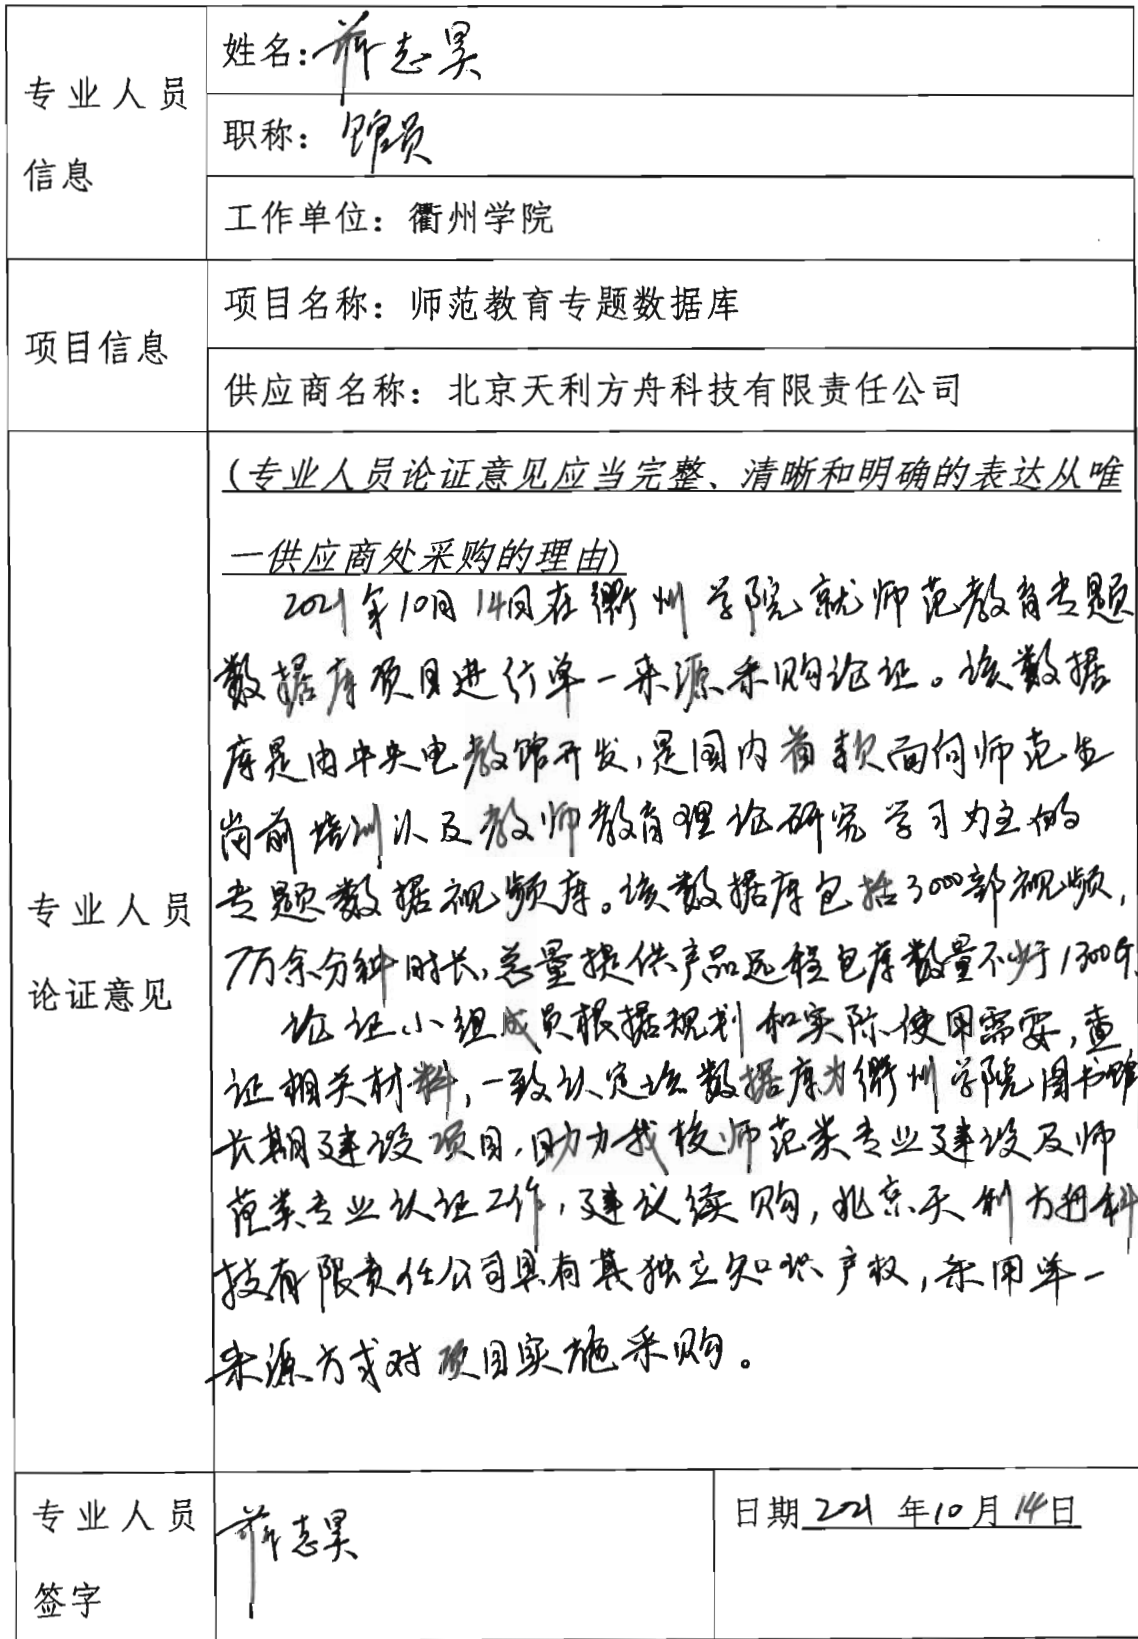 专业人员
信息
姓名：薛志昊
职称：馆员
工作单位：衢州学院
项目信息
项目名称：师范教育专题数据库
供应商名称：北京天利方舟科技有限责任公司
专业人员
论证意见
(专业人员论证意见应当完整、清晰和明确的表达从唯
一供应商处采购的理由)
2021年10月14日在衢州学院就师范教育专题
数据库项目进行单一来源采购论证。该数据
库是由中央电教馆开发，是国内首款面向师范生
岗前培训以及教师教育理论研究学习为主的
专题数据视频库。该数据库包括3000部视频，
7万余分钟时长，总量提供产品远程包库数量不少于1300个
论证小组成员根据规划和实际使用需要，查
证相关材料，一致认定该数据库为衢州学院图书馆
长期建设项目，助力我校师范类专业建设及师
范类专业认证工作，建议续购，北京天利方舟科
技有限责任公司具有其独立知识产权，采用单一
来源方式对项目实施采购。
专业人员
签字
薛志昊
日期 2021 年10月14日